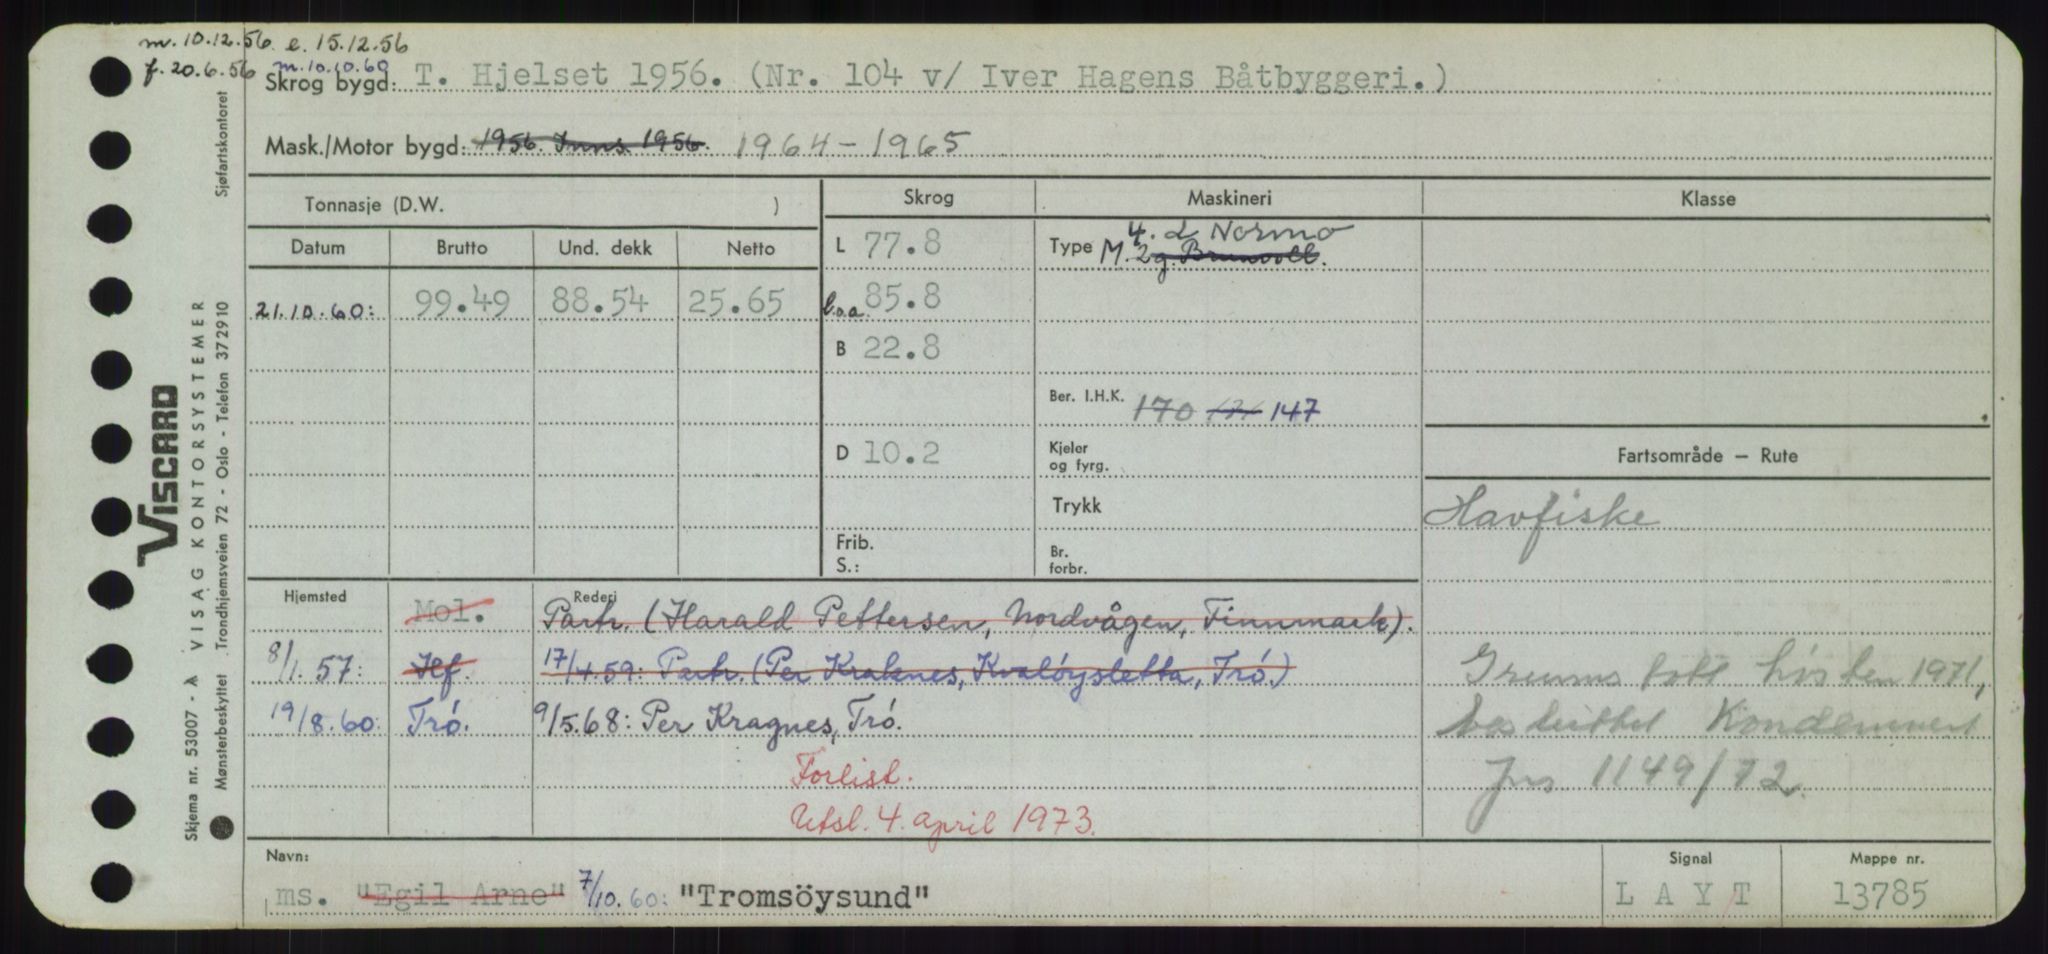 m. 10.12.56. e. 15.12.56
f. 20.6.56 m. 10.10.60
Skrog bygd: T. Hjelset 1956. (Nr. 104 v/ Iver Hagens Båtbyggeri.)
Mask./Motor bygd: 1956. Inns. 1956. 1964 - 1965
Tonnasje (D.W. ) Skrog Maskineri Klasse
Datum Brutto Und. dekk Netto
L 77.8 Type 4. 2 Normo
M. 2 g. Brunvoll.
21.10.60: 99.49 88.54 25.65 l.o.a. 85.8
B 22.8
Ber. I.H.K. 170 171 147
D 10.2 Kjeler og fyrg.
Fartsområde – Rute
Trykk
Havfiske
Frib.
S.:
Br. forbr.
Hjemsted Rederi
Mol. Partr. (Harald Pettersen, Nordvågen, Finnmark).
8/1.57: Hf. 17/4.59: Partr. (Per Kraknes, Kvalöysletta, Trö.)
19/8.60: Trö. 9/5.68: Per Kragnes, Trö.
høsten 1971,
besluttet Kondemnert
Jns 1149/72.
Forlist.
Utsl. 4. april 1973.
Navn: Signal Mappe nr.
ms. "Egil Arne" 7/10.60: "Tromsöysund" L A Y T 13785
VISCARD
VISAG KONTORSYSTEMER
Skjema nr. 53007 - A
Mønsterbeskyttet Trondhjemsveien 72 - Oslo - Telefon 372910
Sjøfartskontoret